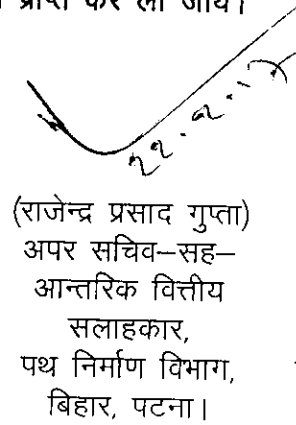 प्राप्त कर ली जाये।
(राजेन्द्र प्रसाद गुप्ता)
अपर सचिव–सह–
आन्तरिक वित्तीय
सलाहकार,
पथ निर्माण विभाग,
बिहार, पटना।